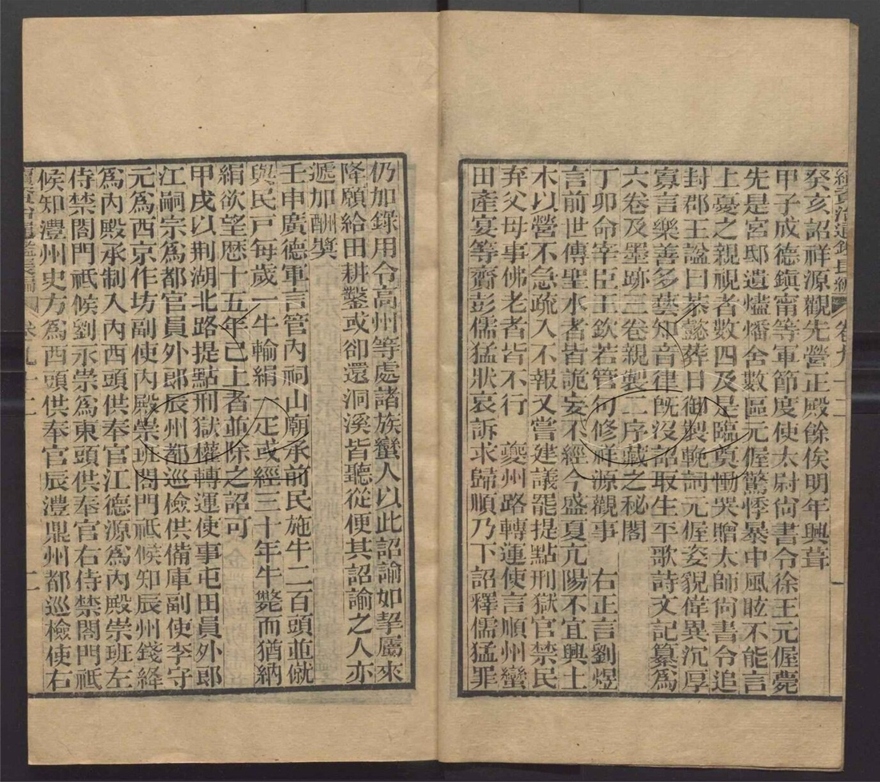 續資治通鑑長編 卷九十二 一
癸亥詔祥源觀先營正殿餘俟明年興葺
甲子成德鎮甯等軍節度使太尉尚書令徐王元偓薨
先是宮邸遺燼燔舍數區元偓驚悸暴中風眩不能言
上憂之親視者數四及是臨奠慟哭贈太師尚書令追
封郡王諡曰恭懿葬日御製輓詞元偓姿貌偉異沉厚
寡言樂善多藝知音律旣沒詔取生平歌詩文記纂爲
六卷及墨跡三卷親製二序藏之秘閣
丁卯命宰臣王欽若管句修祥源觀事 右正言劉煜
言前世傳聖水者皆詭妄不經今盛夏亢陽不宜興土
木以營不急疏入不報又嘗建議罷提點刑獄官禁民
弃父母事佛老者皆不行 夔州路轉運使言順州蠻
田彥宴等齎彭儒猛狀哀訴求歸順乃下詔釋儒猛罪
仍加錄用令高州等處諸族蠻人以此詔諭如挈屬來
降願給田耕鑿或卻還洞溪皆聽從便其詔諭之人亦
遞加酬獎
壬申廣德軍言管內祠山廟承前民施牛二百頭並僦
與民戶每歲一牛輸絹一疋或經三十年牛斃而猶納
絹欲望歷十五年已上者並除之詔可
甲戌以荆湖北路提點刑獄權轉運使事屯田員外郎
江嗣宗爲都官員外郎辰州都巡檢供備庫副使李守
元爲西京作坊副使內殿崇班閤門祗候知辰州錢絳
爲內殿承制入內西頭供奉官江德源爲內殿崇班左
侍禁閤門祗候劉永崇爲東頭供奉官右侍禁閤門祗
候知澧州史方爲西頭供奉官辰澧鼎州都巡檢使右
續資治通鑑長編 卷九十二 二